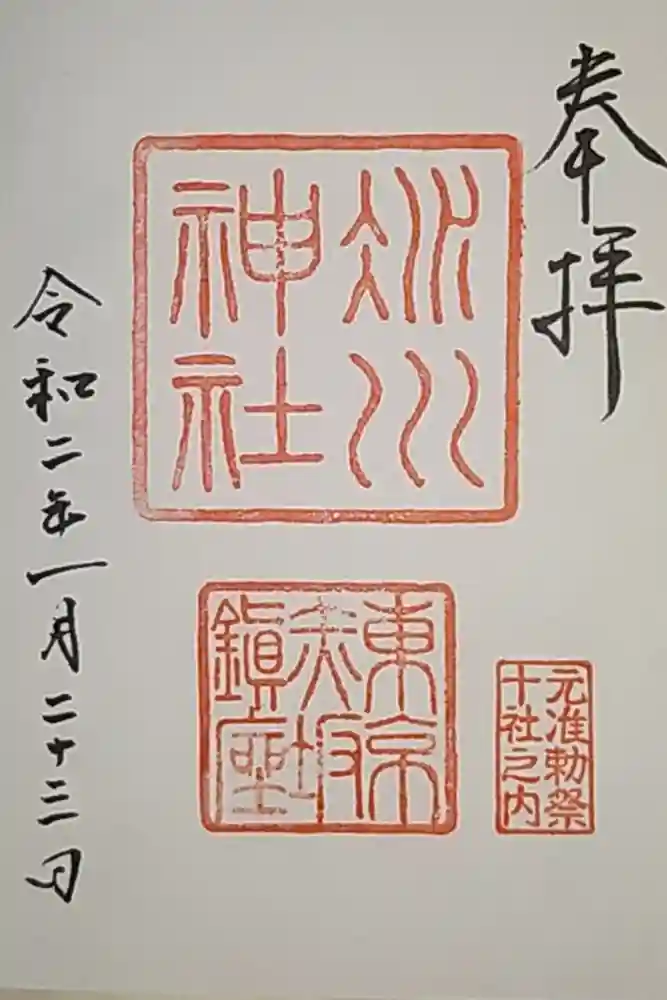 奉拝
氷川
神社
東京
赤坂
鎮座
元准勅祭
十社之内
令和二年一月二十三日